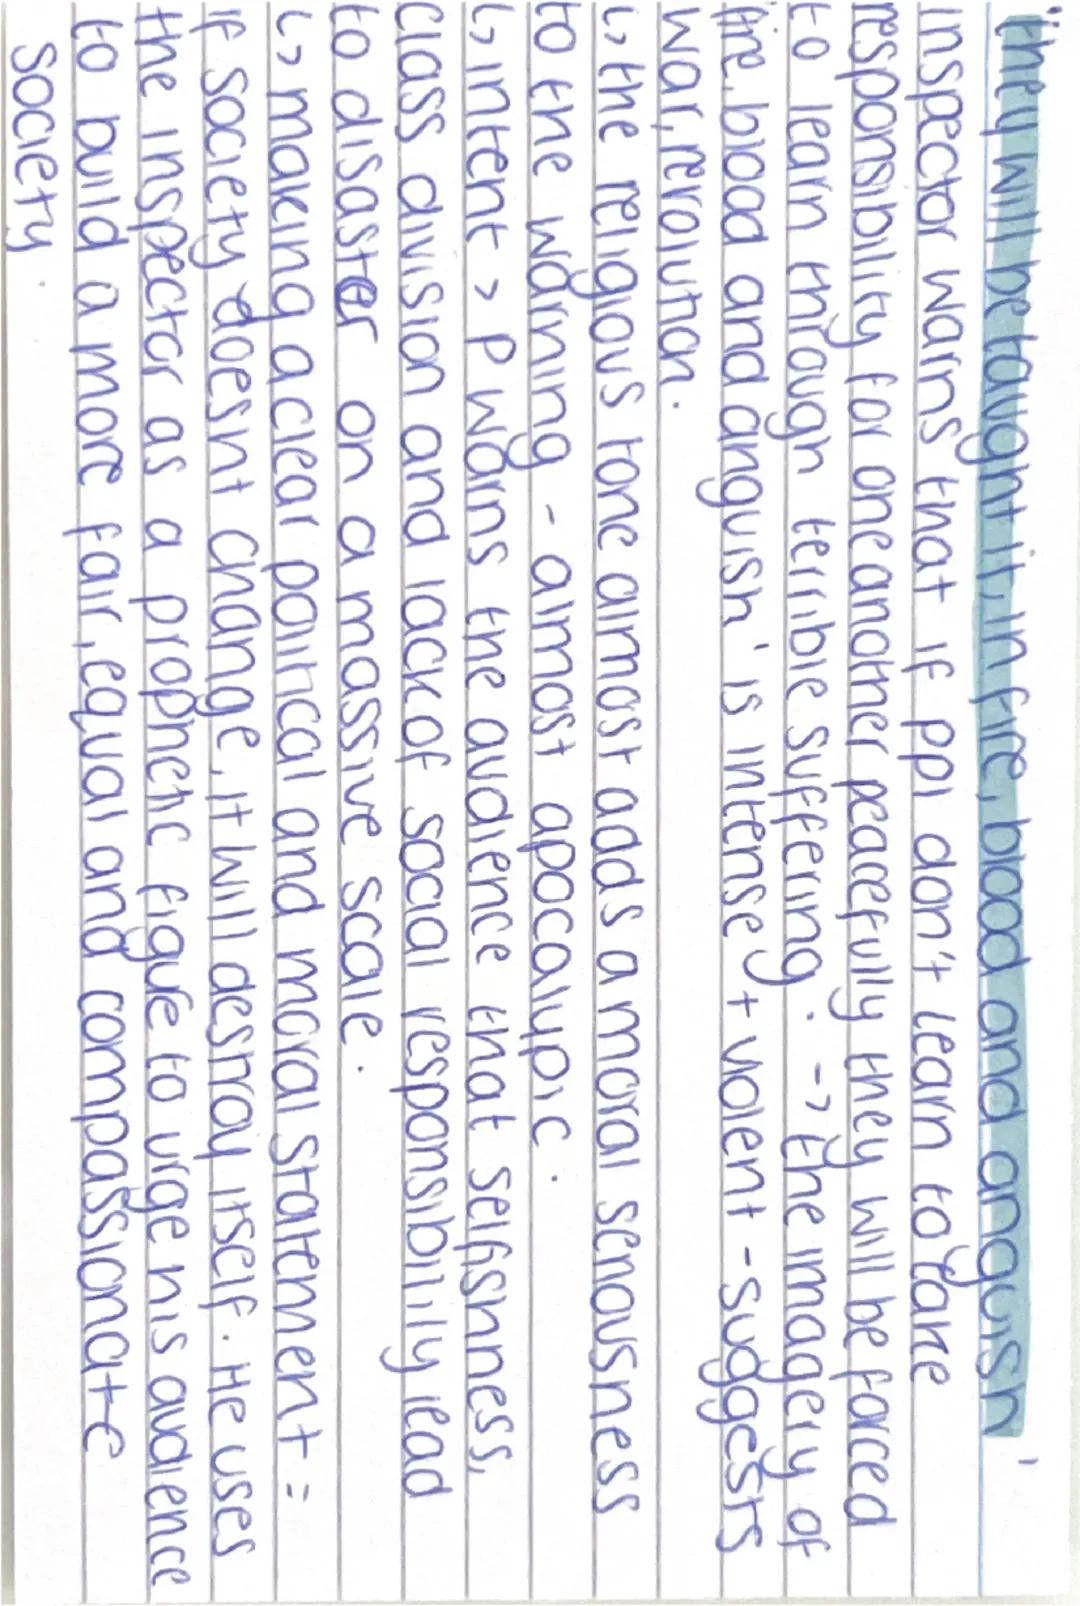 "they will be taught it, in fire, blood and anguish'
inspector warns that if ppl don't learn to take
responsibility for oneanother peacefully they will be forced
to learn through terrible suffering. -> the imagery of
'fire, blood and anguish' is intense + violent - suggests
war, revolution.
↳ the religious tone almost adds a moral seriousness
to the warning - almost apocalypic.
↳ intent > P warns the audience that selfishness,
class division and lack of social responsibility lead
to disaster on a massive scale.
↳ making a clear political and moral statement =
if society doesnt change, it will destroy itself. He uses
the inspector as a prophetic figure to urge his audience
to build a more fair, equal and compassionate
society.